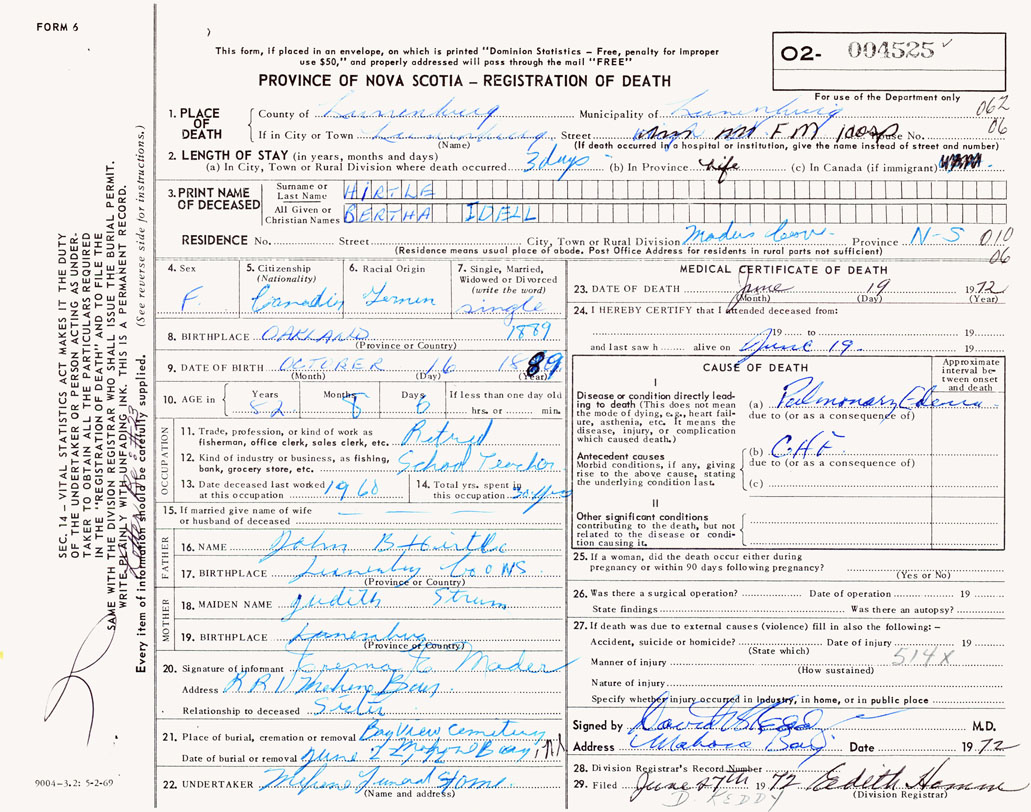 FORM 6
This form, if placed in an envelope, on which is printed "Dominion Statistics – Free, penalty for improper
use $50," and properly addressed will pass through the mail "FREE"
PROVINCE OF NOVA SCOTIA – REGISTRATION OF DEATH
O2- 004525
For use of the Department only
062
06
1. PLACE OF DEATH
County of Lunenburg Municipality of Lunenburg
If in City or Town Lunenburg Street F M House No.
(Name) (If death occurred in a hospital or institution, give the name instead of street and number)
2. LENGTH OF STAY (in years, months and days)
(a) In City, Town or Rural Division where death occurred 3 days (b) In Province Life (c) In Canada (if immigrant)
3. PRINT NAME OF DECEASED
Surname or Last Name HIRTLE
All Given or Christian Names BERTHA IDELL
RESIDENCE No. Street City, Town or Rural Division Maders Cove Province N-S 010
(Residence means usual place of abode. Post Office Address for residents in rural parts not sufficient) 06
4. Sex F.
5. Citizenship (Nationality)
6. Racial Origin
7. Single, Married, Widowed or Divorced (write the word) single
8. BIRTHPLACE OAKLAND 1889
(Province or Country)
9. DATE OF BIRTH OCTOBER 16 1889
(Month) (Day) (Year)
10. AGE in Years 82 Months 8 Days If less than one day old hrs. or min.
OCCUPATION
11. Trade, profession, or kind of work as fisherman, office clerk, sales clerk, etc. Retired
12. Kind of industry or business, as fishing, bank, grocery store, etc. School Teacher
13. Date deceased last worked at this occupation 1960
14. Total yrs. spent in this occupation 30 yrs
15. If married give name of wife or husband of deceased
FATHER
16. NAME John B Hirtle
17. BIRTHPLACE Lunenburg Co NS
(Province or Country)
MOTHER
18. MAIDEN NAME Judith Strum
19. BIRTHPLACE Lunenburg
(Province or Country)
20. Signature of informant Mader
Address RR1 Mahone Bay
Relationship to deceased Sister
21. Place of burial, cremation or removal Bay View Cemetery
Date of burial or removal June Mahone Bay
22. UNDERTAKER Funeral Home
(Name and address)
MEDICAL CERTIFICATE OF DEATH
23. DATE OF DEATH June 19 1972
(Month) (Day) (Year)
24. I HEREBY CERTIFY that I attended deceased from:
19 to 19
and last saw h alive on June 19. 19
CAUSE OF DEATH
Approximate interval between onset and death
I
Disease or condition directly leading to death (This does not mean the mode of dying, e.g., heart failure, asthenia, etc. It means the disease, injury, or complication which caused death.)
(a) Pulmonary Edema
due to (or as a consequence of)
Antecedent causes
Morbid conditions, if any, giving rise to the above cause, stating the underlying condition last.
(b) C.H.F.
due to (or as a consequence of)
(c)
II
Other significant conditions
contributing to the death, but not related to the disease or condition causing it.
25. If a woman, did the death occur either during pregnancy or within 90 days following pregnancy?
(Yes or No)
26. Was there a surgical operation? Date of operation 19
State findings Was there an autopsy?
27. If death was due to external causes (violence) fill in also the following: –
Accident, suicide or homicide? Date of injury 19
(State which)
514X
Manner of injury
(How sustained)
Nature of injury
Specify whether injury occurred in Industry, in home, or in public place
Signed by M.D.
Address Mahone Bay Date 1972
28. Division Registrar's Record Number
29. Filed June 27th 1972 Edith
(Division Registrar)
D. KEDDY
SEC. 14 – VITAL STATISTICS ACT MAKES IT THE DUTY
OF THE UNDERTAKER OR PERSON ACTING AS UNDER-
TAKER TO OBTAIN ALL THE PARTICULARS REQUIRED
IN THE "REGISTRATION OF DEATH" AND TO FILE THE
SAME WITH THE DIVISION REGISTRAR WHO SHALL ISSUE THE BURIAL PERMIT.
WRITE PLAINLY WITH UNFADING INK. THIS IS A PERMANENT RECORD.
Every item of information should be carefully supplied. (See reverse side for instructions.)
9004-3.2: 5-2-69